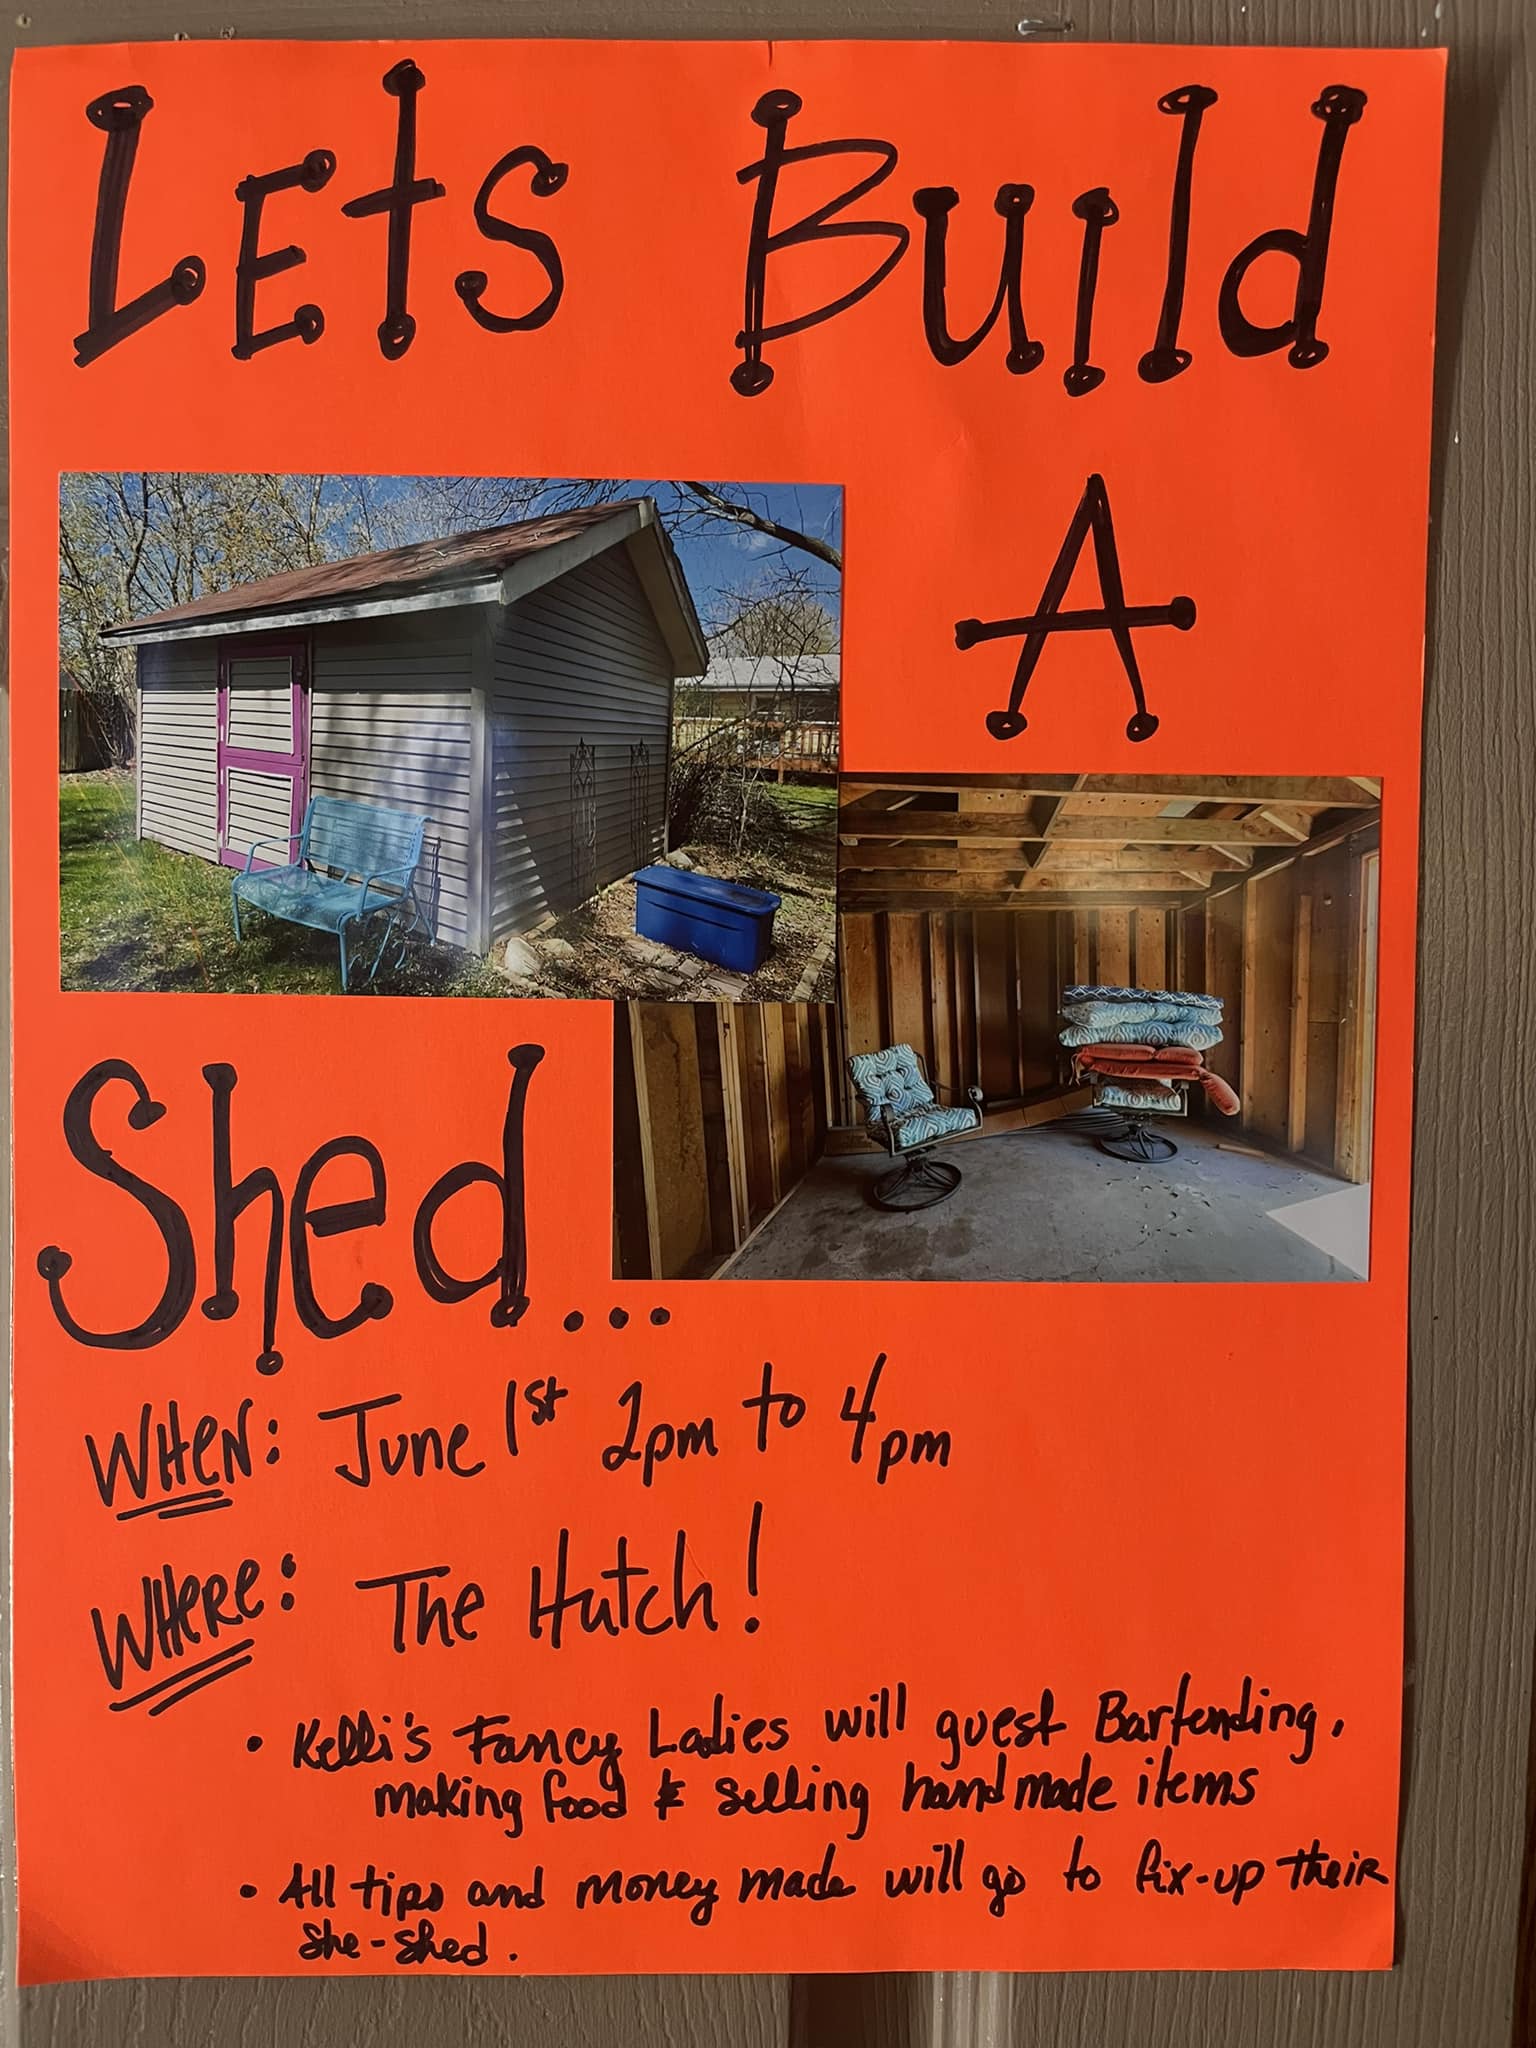 Lets Build
A
Shed...
WHEN: June 1st 2pm to 4pm
WHERE: The Hutch!
• Kelli's Fancy Ladies will guest Bartending,
making food & selling handmade items
• All tips and money made will go to fix-up their
She-shed.